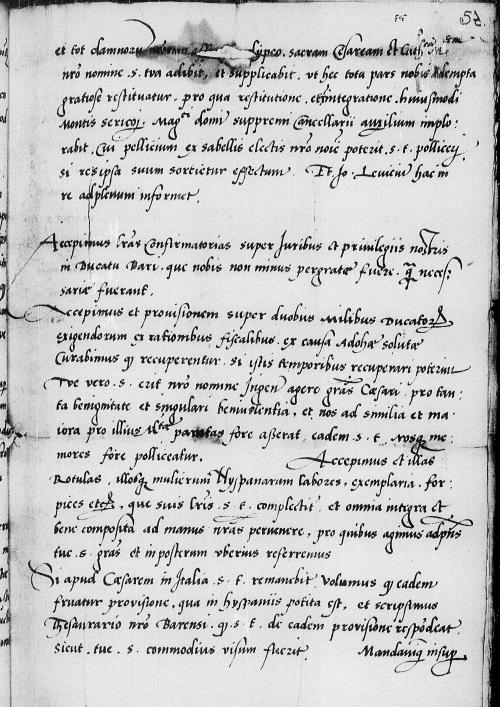 55 55
et tot damnorum sypeo. sacram Cesaream et Cath. M.
nro nomine. s. tva adibit, et supplicabit. vt hec tota pars nobis adempta
gratiose restituatur. pro qua restitutione. et reintegratione. huiusmodi
Montis sericei. Mag.ci domi suppremi Cancellarii auxilium implo:
rabit. Cui pellicium ex sabellis electis nro noie poterit. s. t. polliceri
si res ipsa suum sortietur effectum. Et Jo. Leuicium hac in
re adplenum informet.
Accepimus lras Confirmatorias super Juribus et privilegiis nostris
in Ducatu Bari. que nobis non minus pergratæ fuere. q̃ neces:
sariæ fuerant.
Accepimus et provisionem super duobus Milibus Ducatorum
exigendorum ex rationibus fiscalibus. ex causa Adohæ solutæ
Curabimus q recuperentur. si istis temporibus recuperari poterunt
Tve vero. s. erit nro nomine Ingentes agere gras Cæsari. pro tan:
ta benignitate et singulari beniuolentia, et nos ad similia et ma:
iora pro illius Mta fore asserat. eadem. s. t. nosq me:
mores fore polliceatur. Accepimus et illas
Rotulas, illosq mulierum Hyspanarum labores, exemplaria. for:
pices etc, que suis lris. s. t. complectit. et omnia integra et
bene composita ad manus nras peruenere, pro quibus agimus adpñs
tue. s. gras et in posterum vberius referremus
Si apud Cæsarem in Italia. s. t. remanebit volumus q eadem
fruatur provisione, qua in hyspaniis potita est, et scripsimus
Thesaurario nro Barensi. q. s. t. de eadem provisione respõdeat.
Sicut. tue. s. commodius visum fuerit. Mandauimq insup